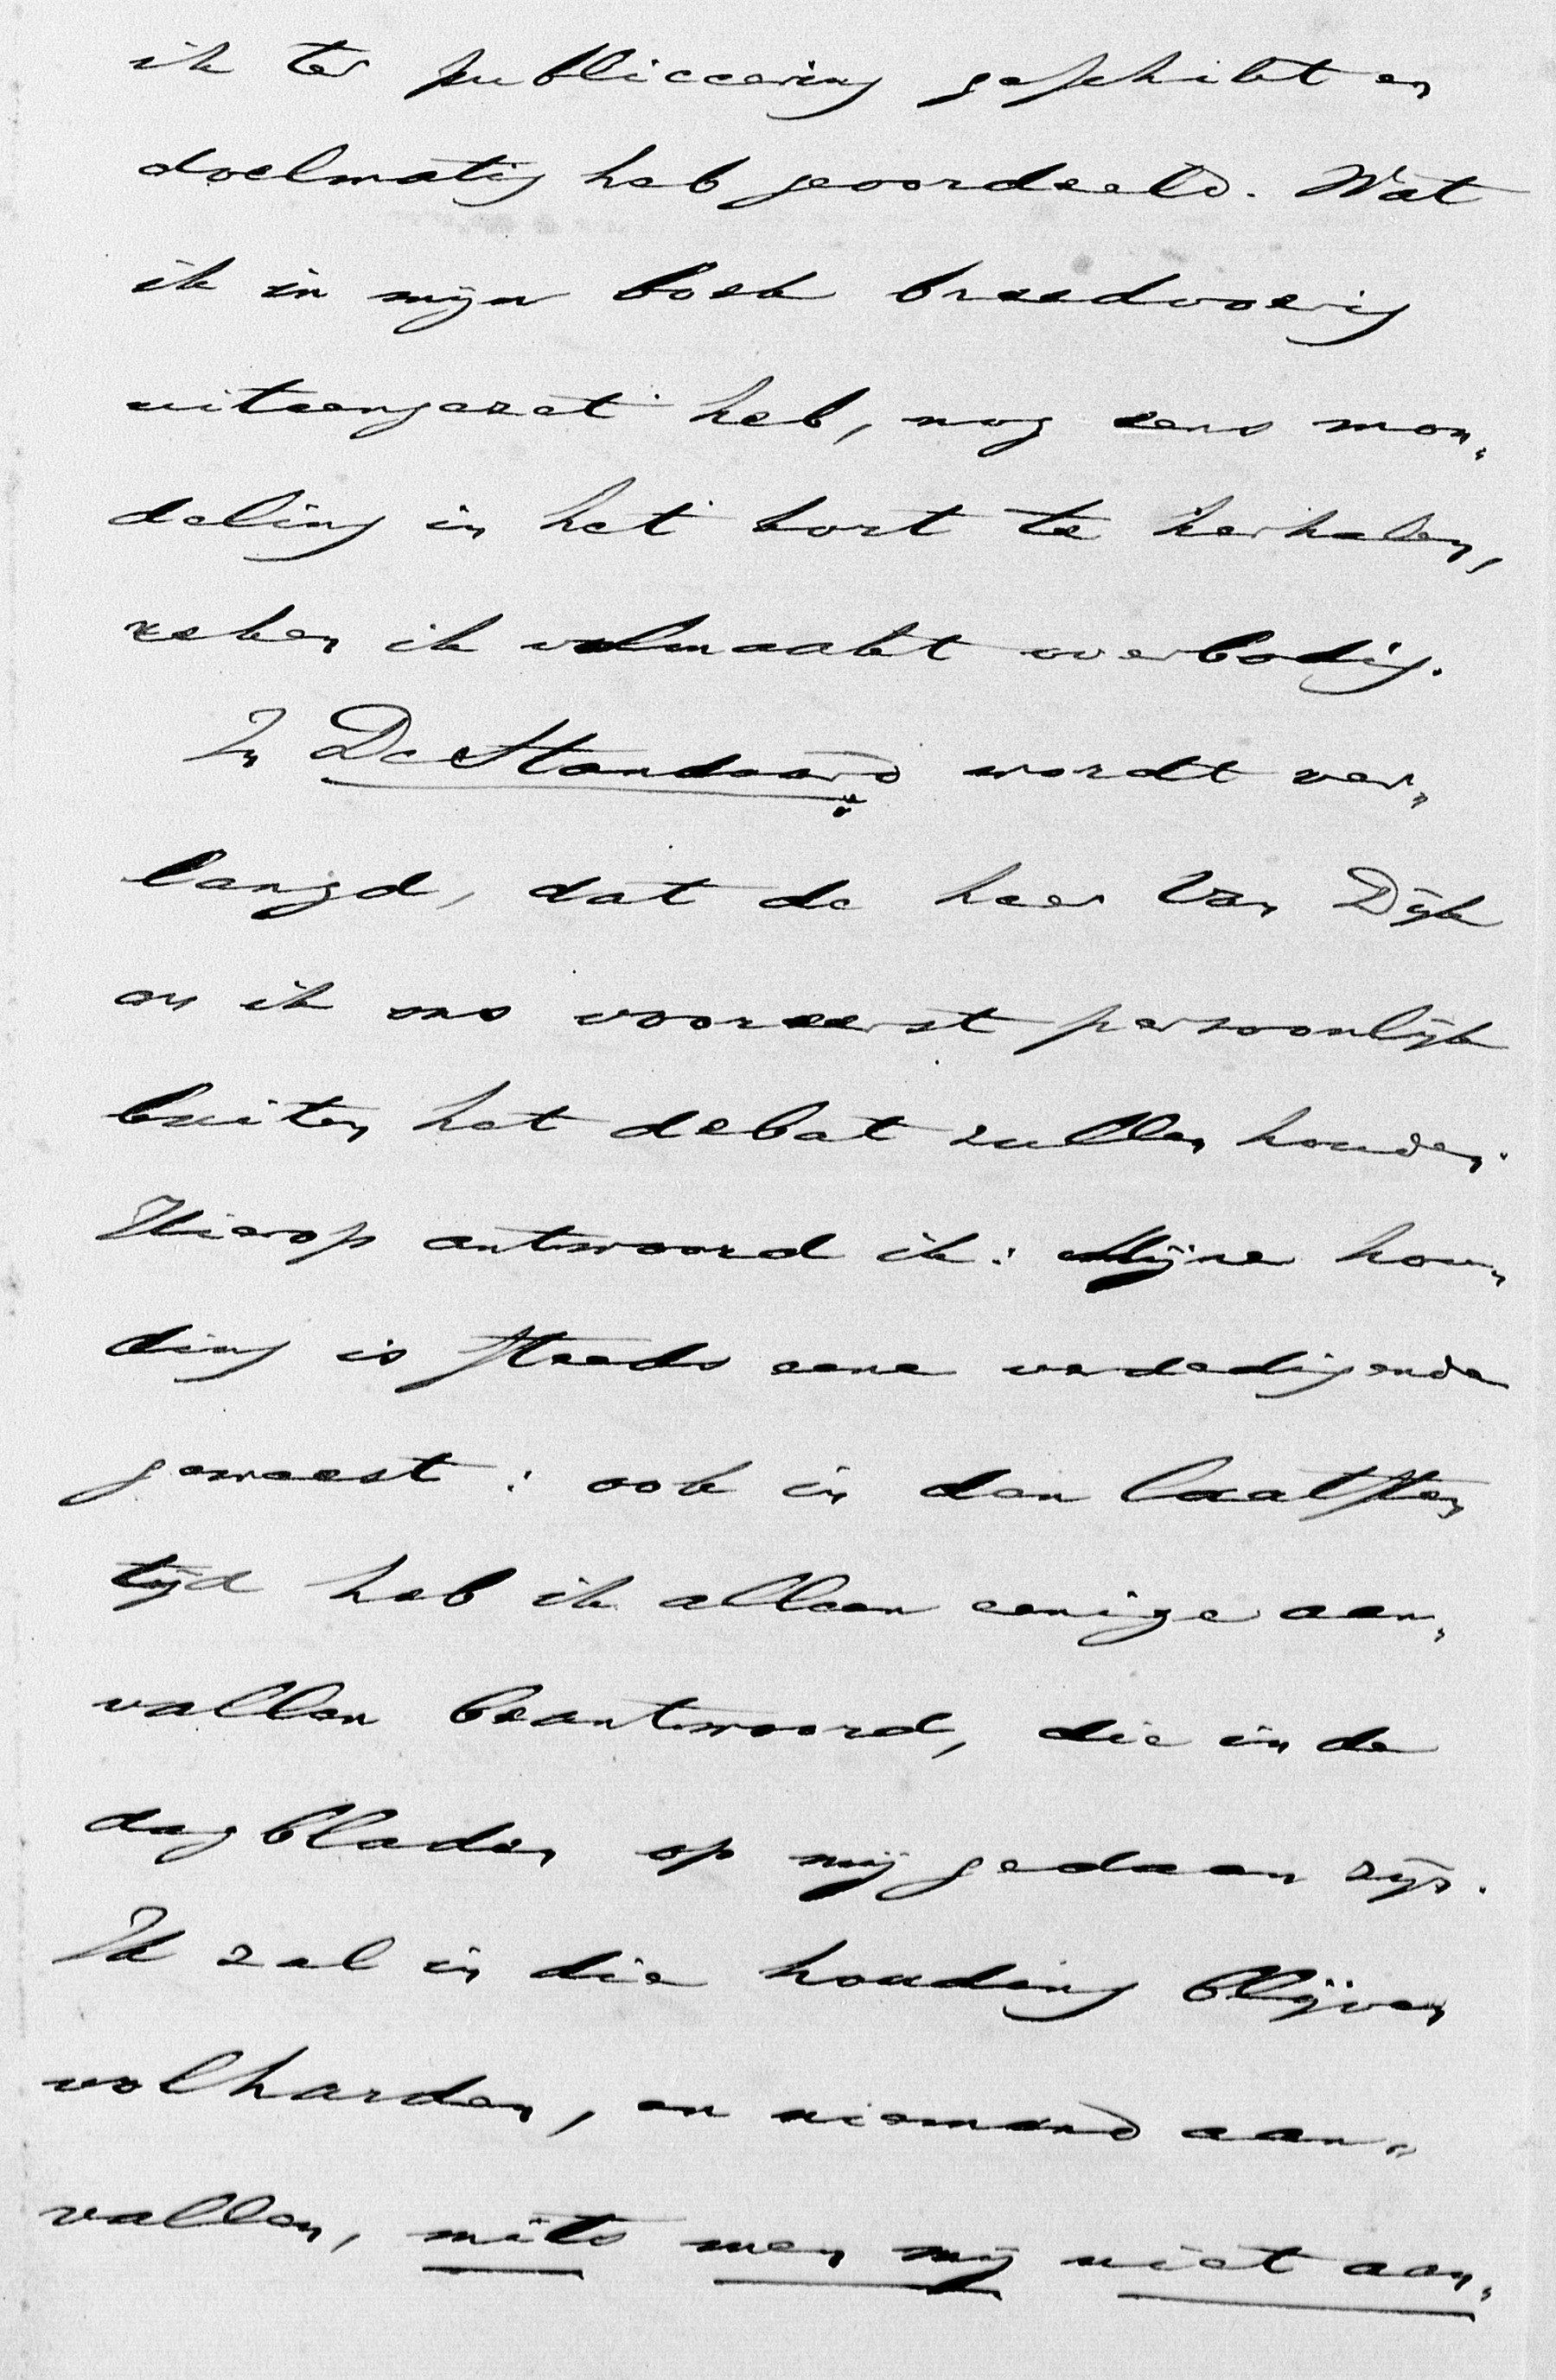 ik ter publiceering geschikt en
doelmatig heb geoordeeld. Wat
ik in mijn boek breedvoerig
uiteengezet heb, nog eens mon„
deling in het kort te herhalen,
reken ik volmaakt overbodig.
In De Standaard wordt ver„
langd, dat de heer Van Dijk
en ik ons vooreerst persoonlijk
buiten het debat zullen houden.
Hierop antwoord ik: Mijne hou„
ding is steeds eene verdedigende
geweest: ook in den laatsten
tijd heb ik alleen eenige aan„
vallen beantwoord, die in de
dagbladen op mij gedaan zijn.
Ik zal in die houding blijven
volharden, en niemand aan„
vallen, mits men mij niet aan„